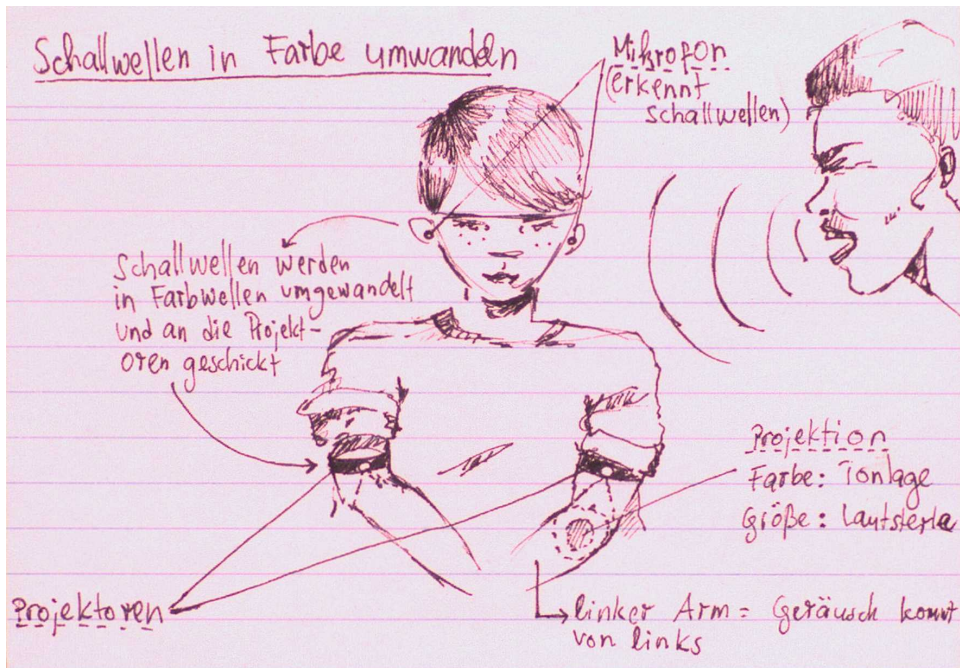 Schallwellen in Farbe umwandeln
Mikrofon
(erkennt
Schallwellen)
Schallwellen werden
in Farbwellen umgewandelt
und an die Projekt-
oren geschickt
Projektion
Farbe: Tonlage
Größe: Lautsterke
Projektoren
linker Arm = Geräusch kommt
von links